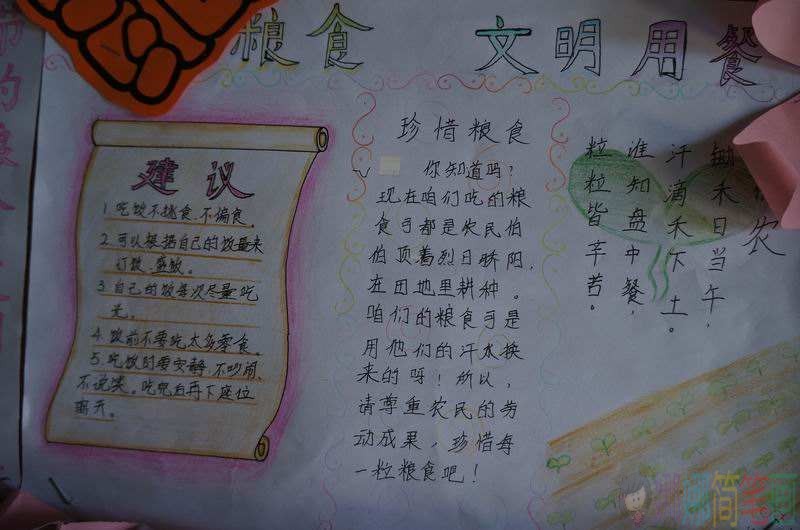 粮食 文明用餐
建议
1.吃饭不挑食.不偏食。
2.可以根据自己的饭量来
打饭.盛饭。
3.自己的饭每次尽量吃
光。
4.饭前不要吃太多零食。
5.吃饭时要安静.不吵闹.
不说笑。吃完后再下座位
离开。
珍惜粮食
你知道吗？
现在咱们吃的粮
食可都是农民伯
伯顶着烈日骄阳,
在田地里耕种。
咱们的粮食可是
用他们的汗水换
来的呀！所以,
请尊重农民的劳
动成果,珍惜每
一粒粮食吧！
农
锄禾日当午,
汗滴禾下土。
谁知盘中餐,
粒粒皆辛苦。
简笔画